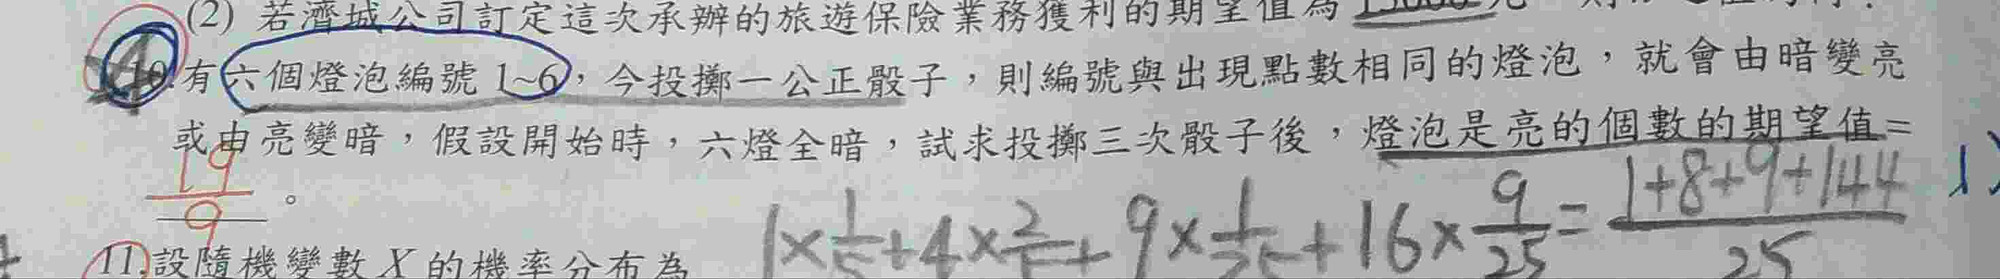 (2) 若濟城公司訂定這次承辦的旅遊保險業務獲利的期望值為
10.有六個燈泡編號 1~6，今投擲一公正骰子，則編號與出現點數相同的燈泡，就會由暗變亮
或由亮變暗，假設開始時，六燈全暗，試求投擲三次骰子後，燈泡是亮的個數的期望值=
19/9 。
1×1/5+4×2/5+9×1/25+16×9/25=1+8+9+144/25
11.設隨機變數 X 的機率分布為